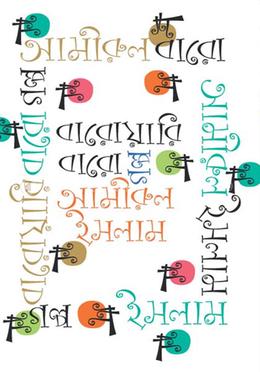 আমীরুল বারো
গল্প
বারোয়ারি
বারোয়ারি
বারো গল্প
আমীরুল
ইসলাম
আমীরুল
ইসলাম
গল্প ইসলাম